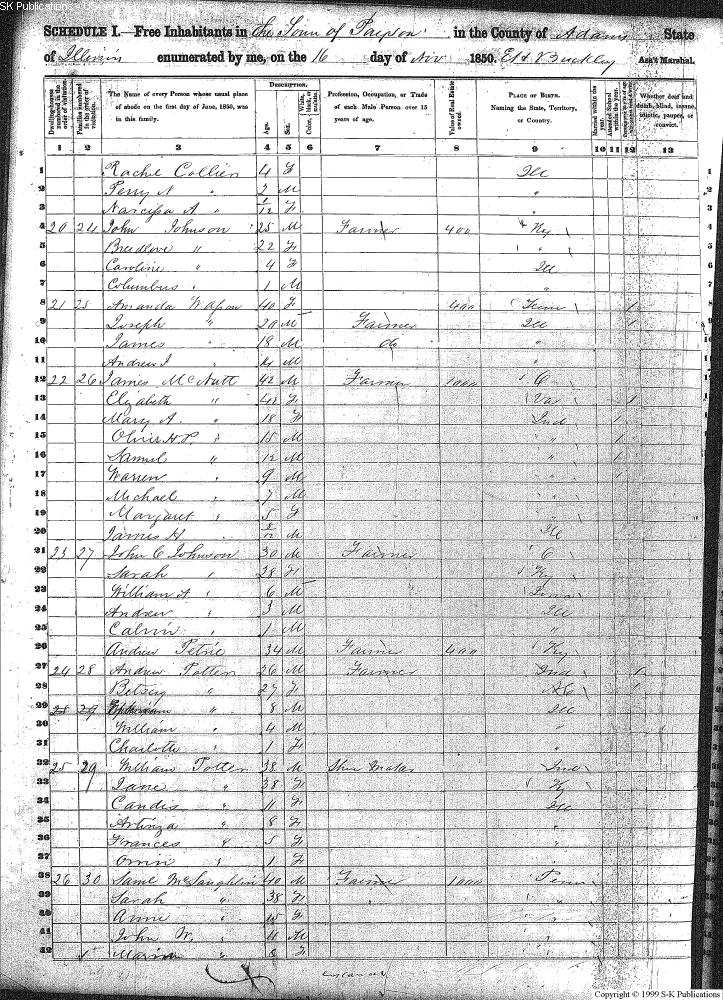 SK Publications
SCHEDULE I.—Free Inhabitants in the Town of Payson in the County of Adams State
of Illinois enumerated by me, on the 16 day of Nov 1850. Buckley Ass't Marshal.
Dwelling-houses numbered in the order of visitation.
Families numbered in the order of visitation.
The Name of every Person whose usual place of abode on the first day of June, 1850, was in this family.
DESCRIPTION.
Age.
Sex.
White, black, or mulatto.
Color,
Profession, Occupation, or Trade of each Male Person over 15 years of age.
Value of Real Estate owned.
PLACE OF BIRTH. Naming the State, Territory, or Country.
Married within the year.
Attended School within the year.
Whether deaf and dumb, blind, insane, idiotic, pauper, or convict.
1 2 3 4 5 6 7 8 9 10 11 12 13
1 Rachel Collier 4 F Ill
2 Perry N " 2 M "
3 Narcissa A " /12 F "
4 20 24 John Johnson 25 M Farmer 400 Ky
5 Breedlove " 22 F "
6 Caroline " 4 F Ill
7 Columbus " 1 M "
8 21 25 Amanda 40 F 400 Tenn 1
9 Joseph " 20 M Farmer Ill 1
10 James " 18 M do "
11 Andrew J " M "
12 22 26 James McNutt 42 M Farmer 1000 O
13 Elizabeth " 42 F Va 1
14 Mary A. " 18 F Ind 1
15 Oliver H P " 15 M " 1
16 Samuel " 12 M " 1
17 Warren " 9 M " 1
18 Michael " 7 M "
19 Margaret " 5 F "
20 James H " /12 M Ill
21 23 27 John C Johnson 30 M Farmer O
22 Sarah " 28 F Ky
23 William A " 6 M
24 Andrew " 3 M Ill
25 Calvin " 1 M "
26 Andrew Petrie 34 M Farmer 400 Ky
27 24 28 Andrew Potter 26 M Farmer Ind 1
28 Betsey " 27 F 1
29 28 29 " 8 M Ill
30 William " 4 M "
31 Charlotte " 1 F "
32 25 29 William Potter 38 M Ind
33 Jane " 38 F Ky
34 Candis " 11 F Ill
35 " 8 F "
36 Frances " 5 F "
37 " 1 F "
38 26 30 Saml McLaughlin 40 M Farmer 1000 Penn
39 Sarah " 38 F "
40 Anne " 15 F "
41 John W. " 11 M "
42 " 8 F "
Copyright © 1999 S-K Publications